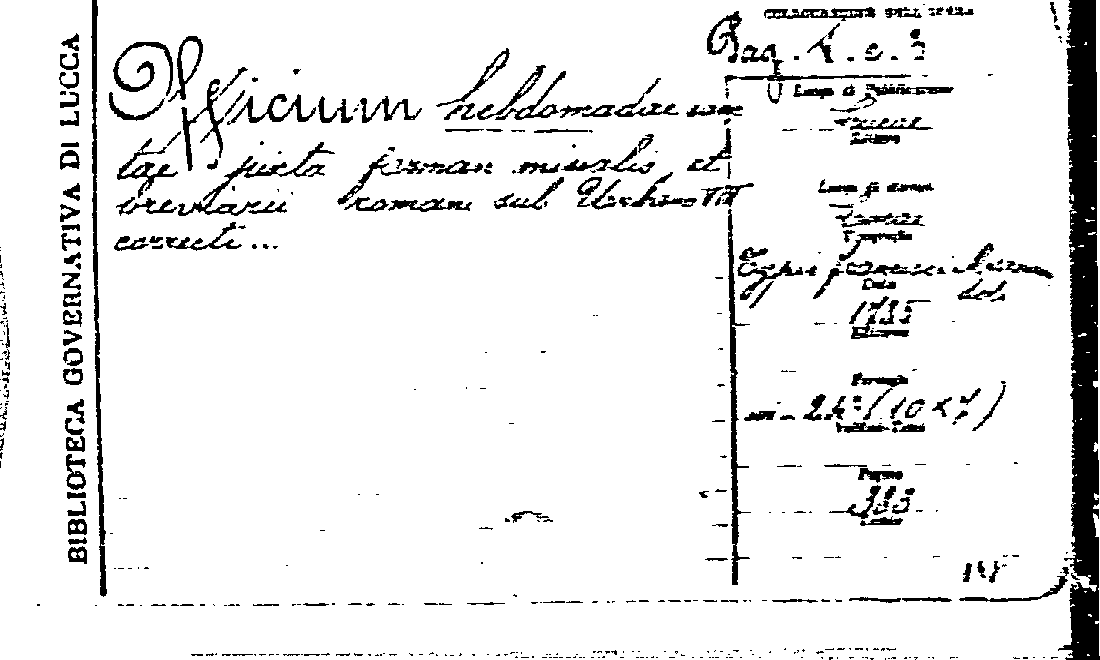 BIBLIOTECA GOVERNATIVA DI LUCCA
Officium hebdomadae sanc
tae juxta formam missalis et
breviarii romani sub Urbano VIII
correcti...
COLLOCAZIONE DELL'OPERA
Bag. 1. c. 3
Luogo di Pubblicazione
Lucae
Luogo di stampa
Lucae
Tipografia
Typis Francisci
Data
1735
Edizione
Formato
in-24° (10x7)
Pagine
383